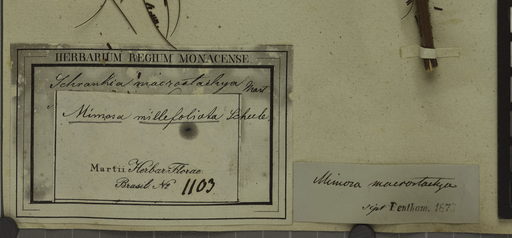 HERBARIUM REGIUM MONACENSE
Schrankia macrostachya Mart
Mimosa millefoliata Scheele.
Martii Herbar. Florae
Brasil. No 1103
Mimosa macrostachya
sipt Bentham. 1875